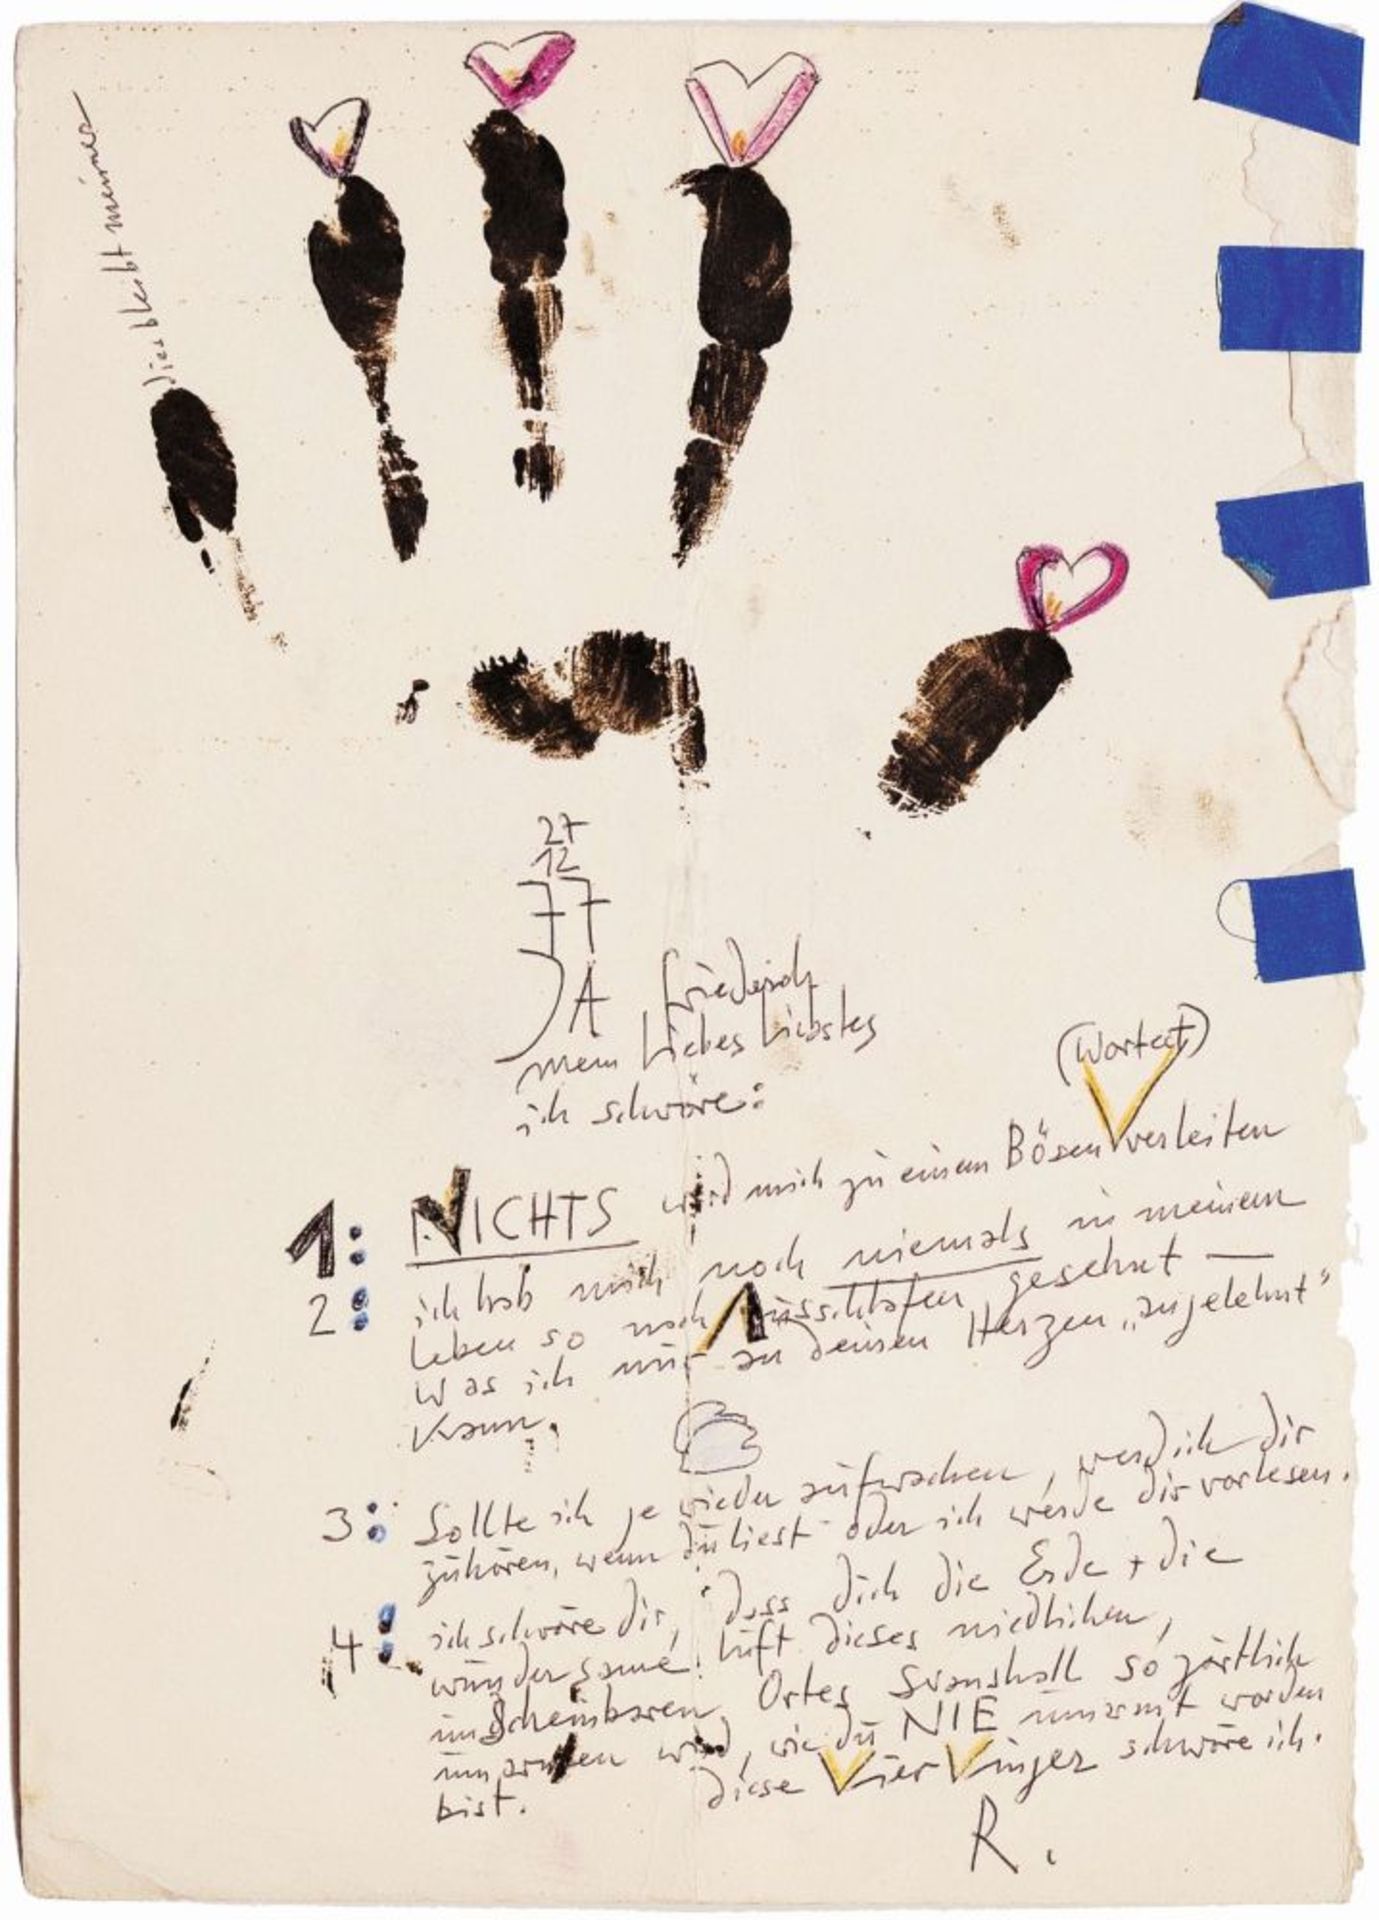 dies bleibt meiner
27
12
77
JA Friederich
mein liebes Liebstes
ich schwöre:
(Wortect)
1: NICHTS wird mich zu einem Bösen verleiten
2: ich hab mich noch niemals in meinem
Leben so nach Ausschlafen gesehnt —
was ich nur an deinem Herzen „angelehnt"
kann.
3: Sollte ich je wieder aufwachen, werd ich dir
zuhören, wenn du liest oder ich werde dir vorlesen.
4: ich schwöre dir, dass dich die Erde + die
wundersame Luft dieses niedlichen,
unscheinbaren Ortes Svanshall so zärtlich
umarmen wird, wie du NIE umarmt worden
bist. diese Vier Vinger schwöre ich.
R.